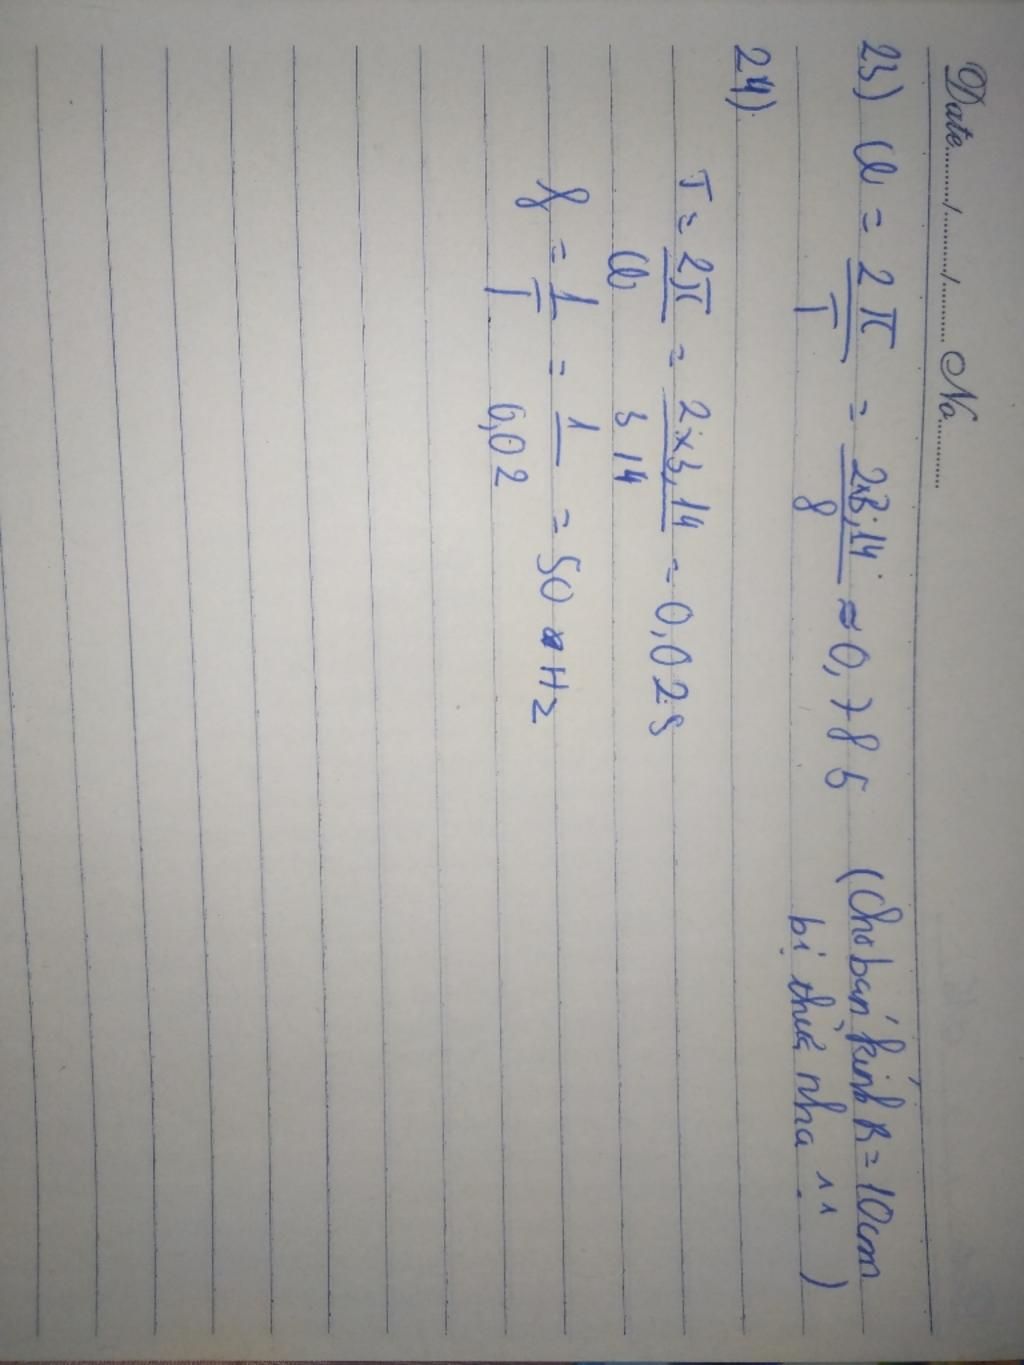 Date......./......../......... No..........
23) ω = 2π/T = 2x3,14/8 ≈ 0,785 (Cho bán kính R = 10cm
bị thừa nha ^.^)
24).
T = 2π/ω = 2x3,14/314 = 0,02s
f = 1/T = 1/0,02 = 50 Hz